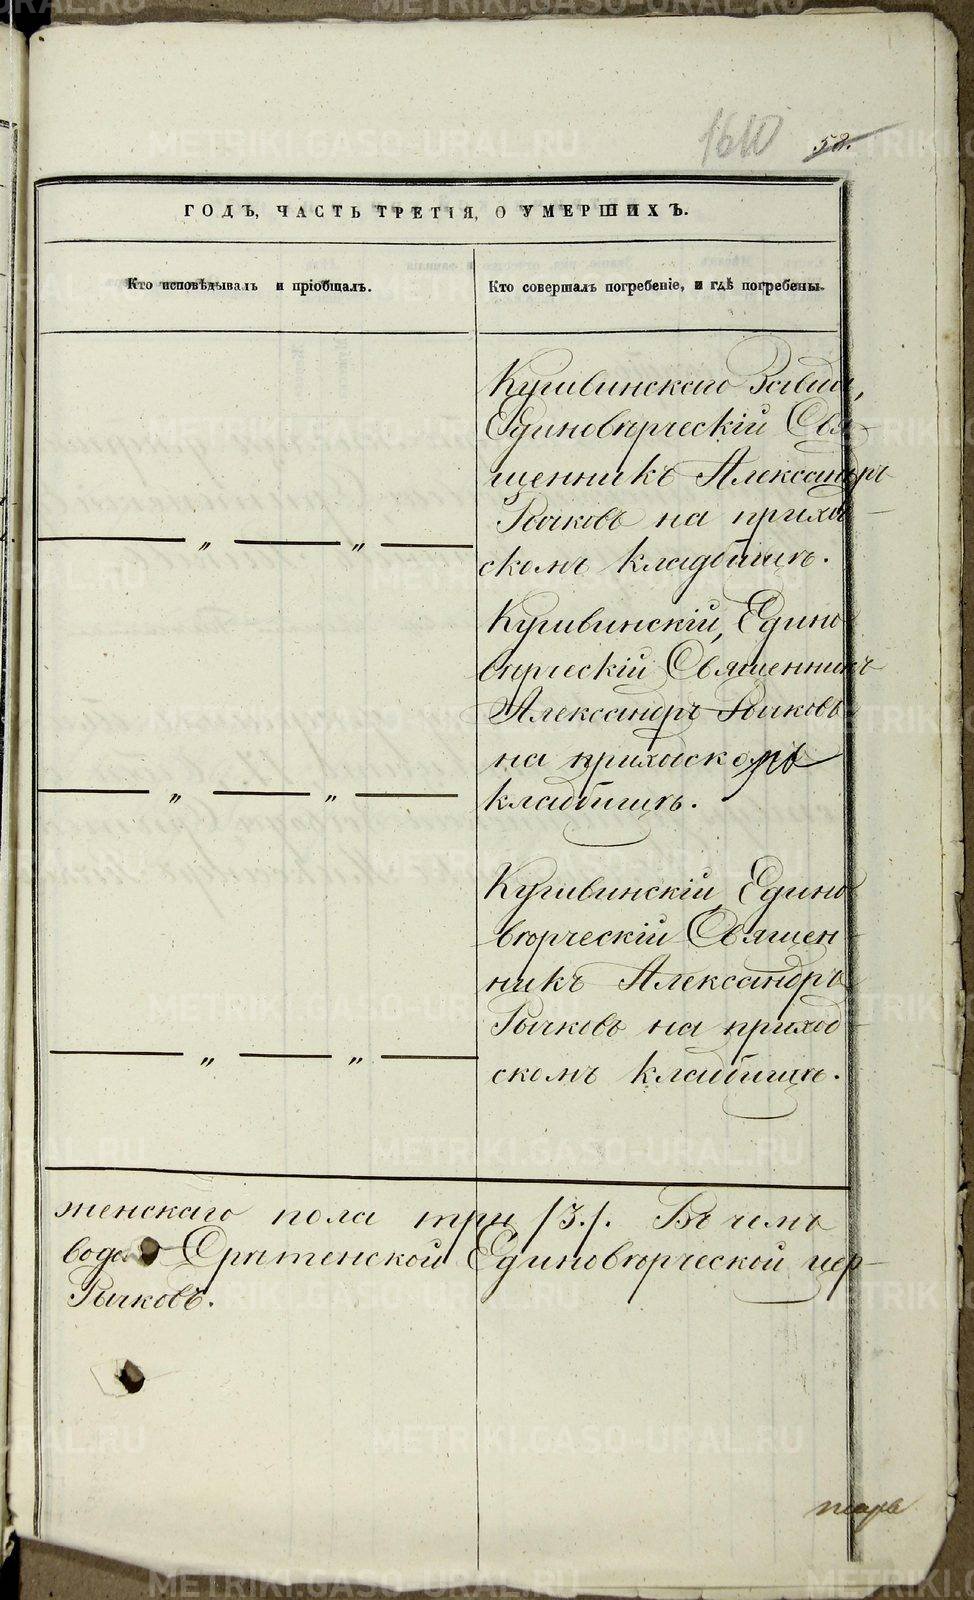 METRIKI.GASO-URAL.RU
1610 58.
ГОДЪ, ЧАСТЬ ТРЕТІЯ, О УМЕРШИХЪ.
Кто исповѣдывалъ и пріобщалъ.
Кто совершалъ погребеніе, и гдѣ погребены.
Кушвинскаго Завода,
Единовѣрческій Свя-
щенникъ Александръ
Рычковъ на приход-
скомъ кладбищѣ.
— „ — „ —
Кушвинскій, Едино
вѣрческій Священникъ
Александръ Рычковъ
на приходскомъ
кладбищѣ.
— „ — „ —
Кушвинскій, Едино
вѣрческій Священ-
никъ Александръ
Рычковъ на приход-
скомъ кладбищѣ.
— „ — „ —
женскаго пола три /3./. Въ чемъ
вода Срѣтенской Единовѣрческой цер-
Рычковъ.